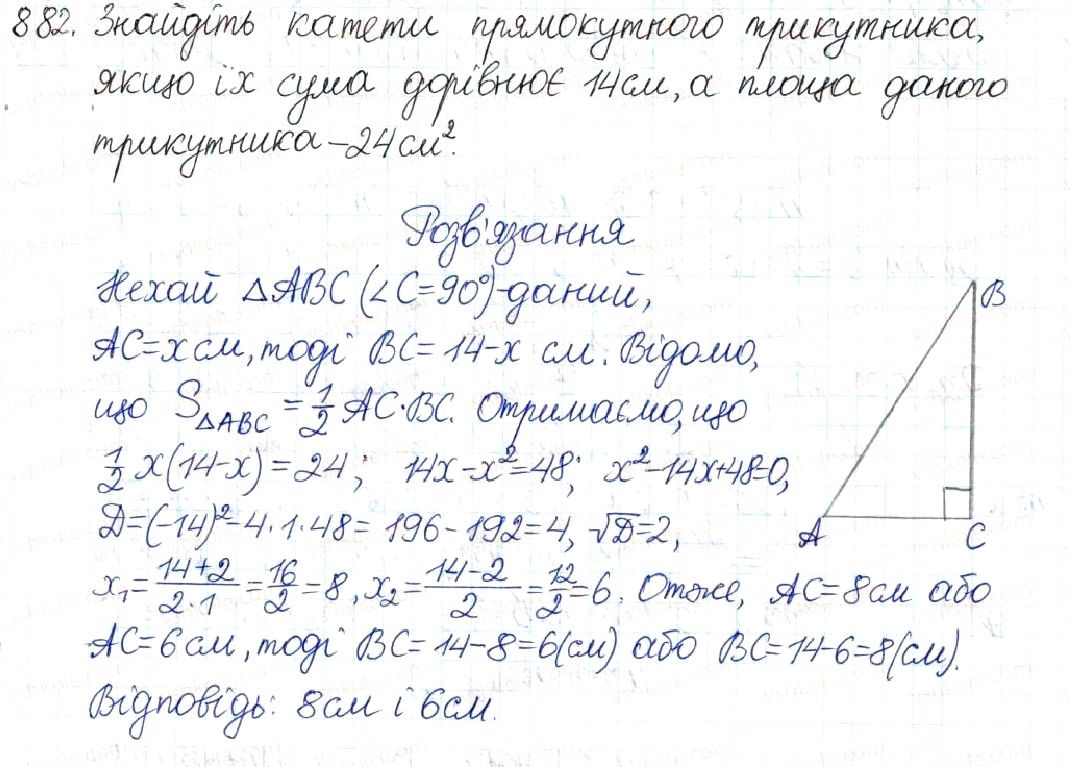 882. Знайдіть катети прямокутного трикутника,
якщо їх сума дорівнює 14 см, а площа даного
трикутника – 24 см².
Розв'язання
Нехай △ABC (∠C=90°)-даний,
AC=x см, тоді BC=14-x см. Відомо,
що S△ABC = 1/2 AC·BC. Отримаємо, що
1/2 x(14-x)=24; 14x-x²=48; x²-14x+48=0;
D=(-14)²-4·1·48=196-192=4, √D=2,
x₁=(14+2)/(2·1)=16/2=8, x₂=(14-2)/2=12/2=6. Отже, AC=8см або
AC=6см, тоді BC=14-8=6(см) або BC=14-6=8(см).
Відповідь: 8см і 6см.
B
A
C